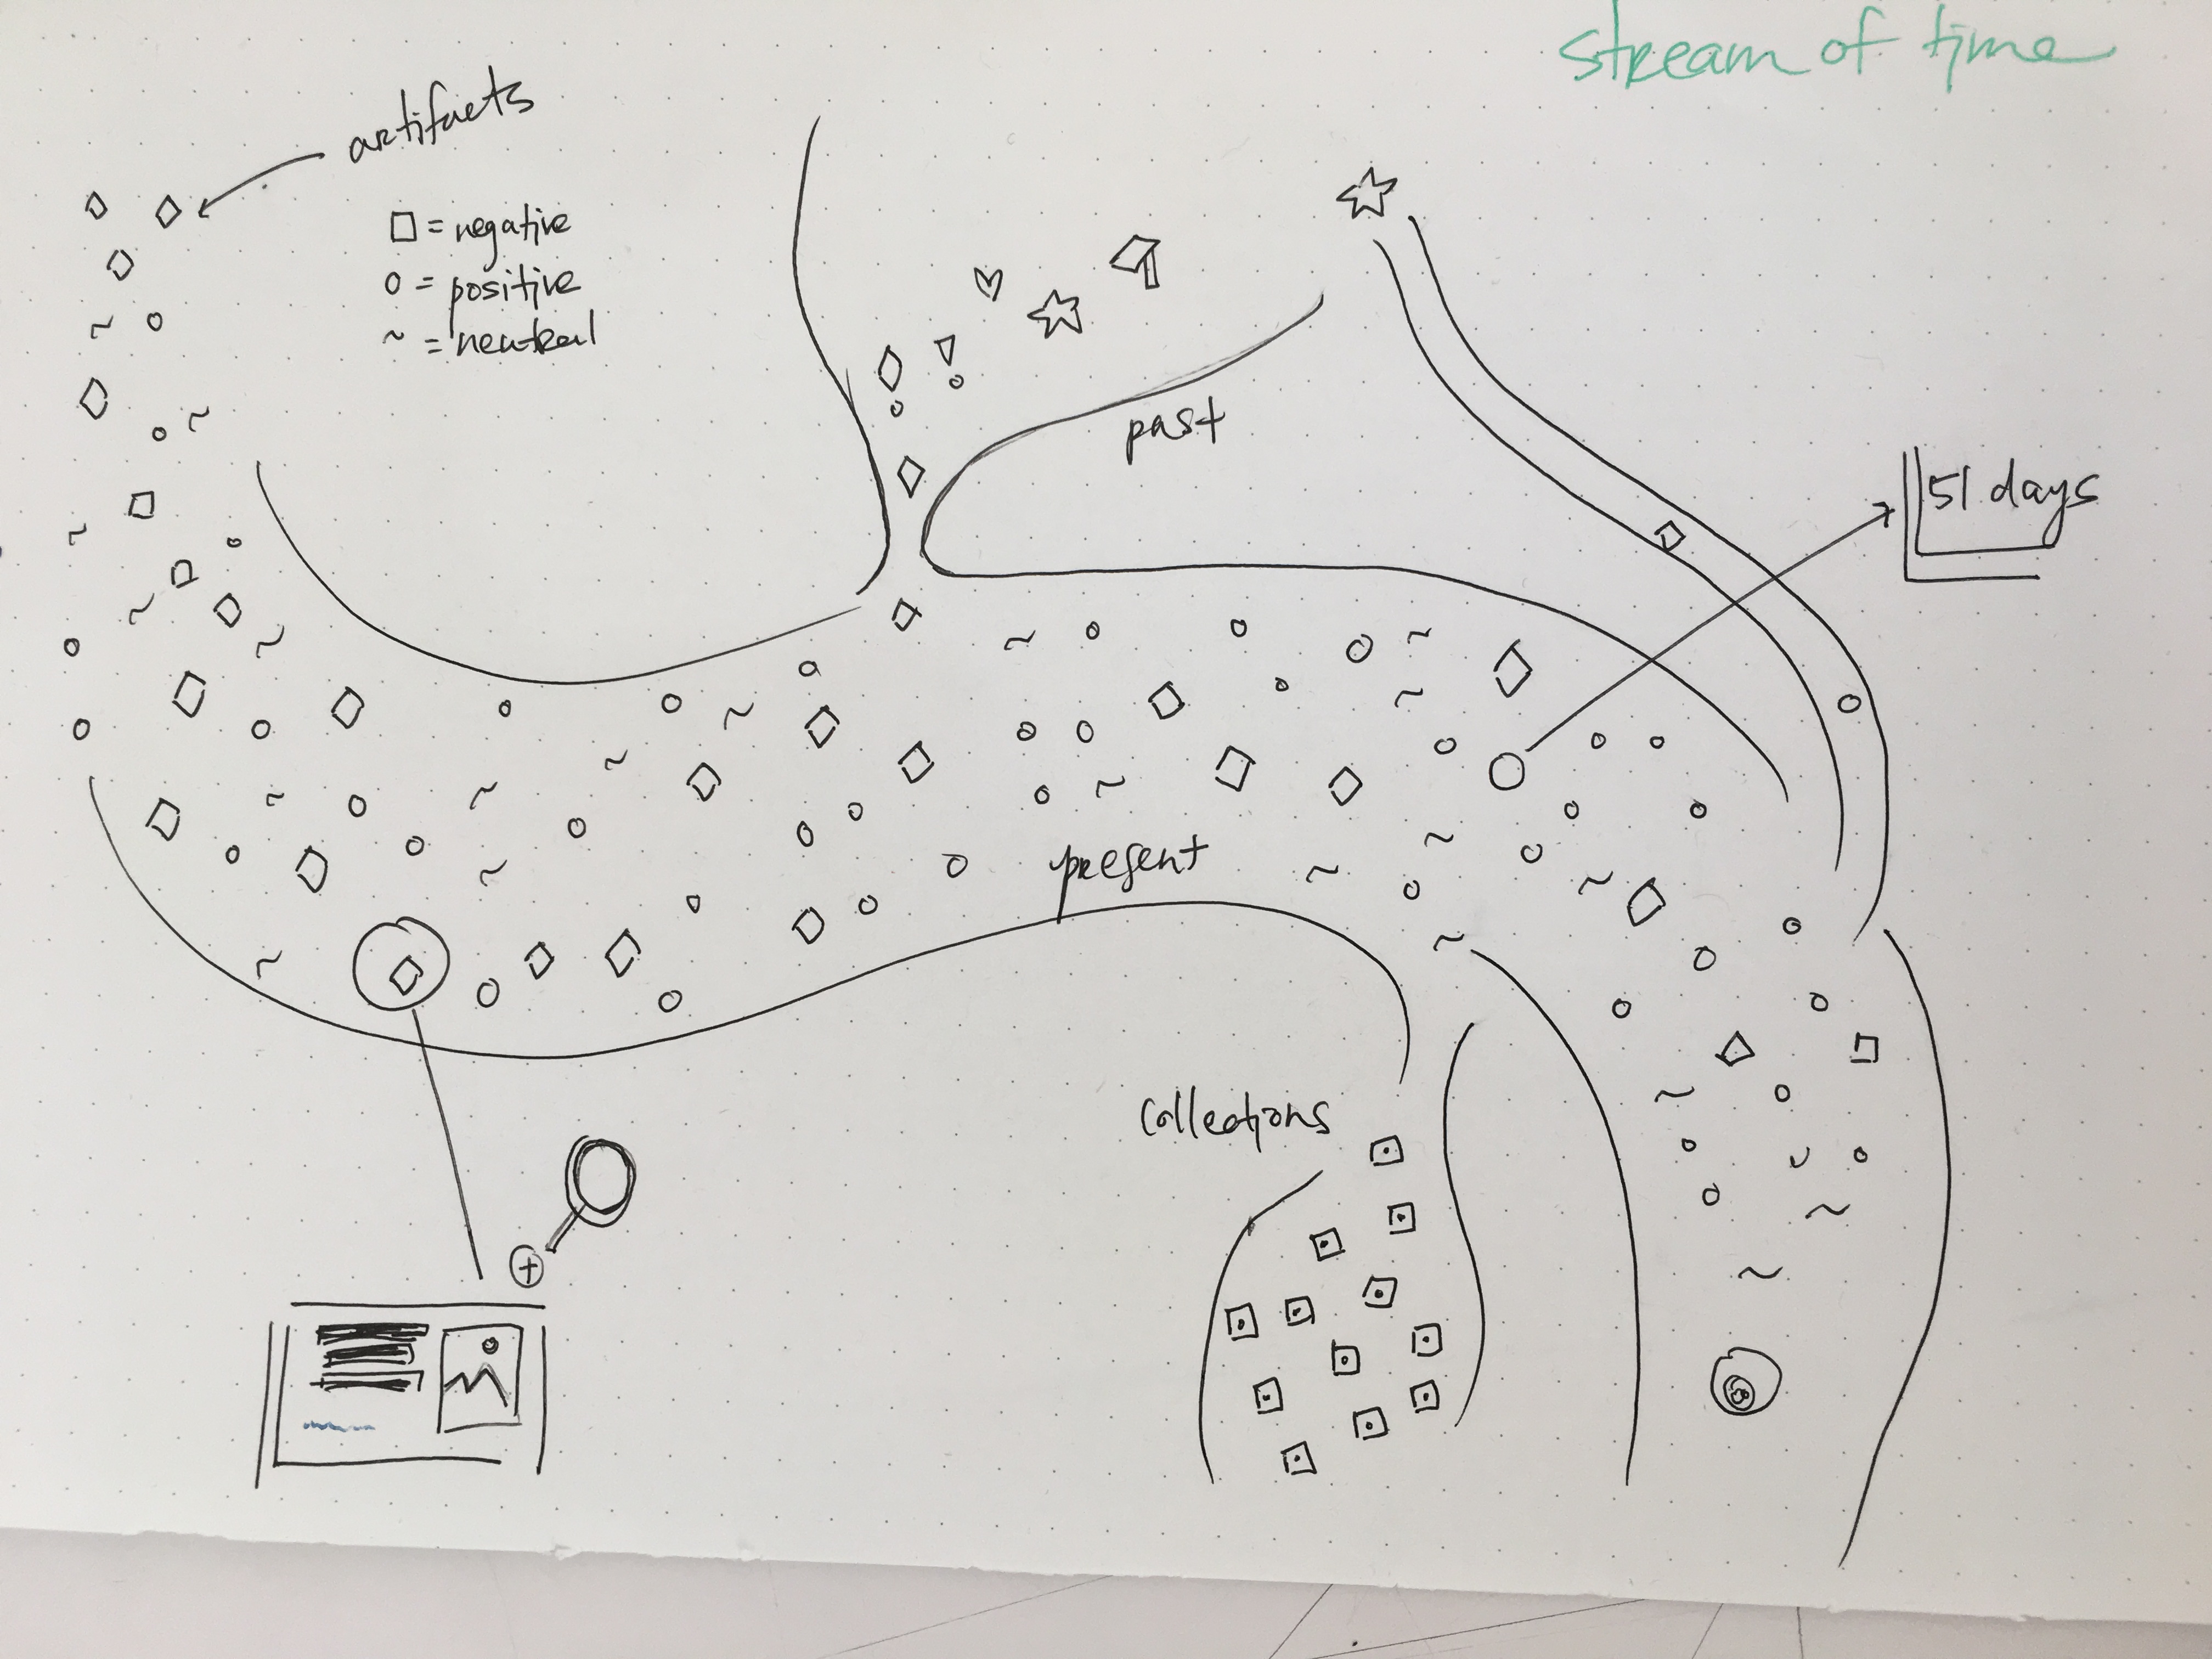 stream of time
artifacts
□ = negative
o = positive
~ = neutral
past
51 days
present
collections